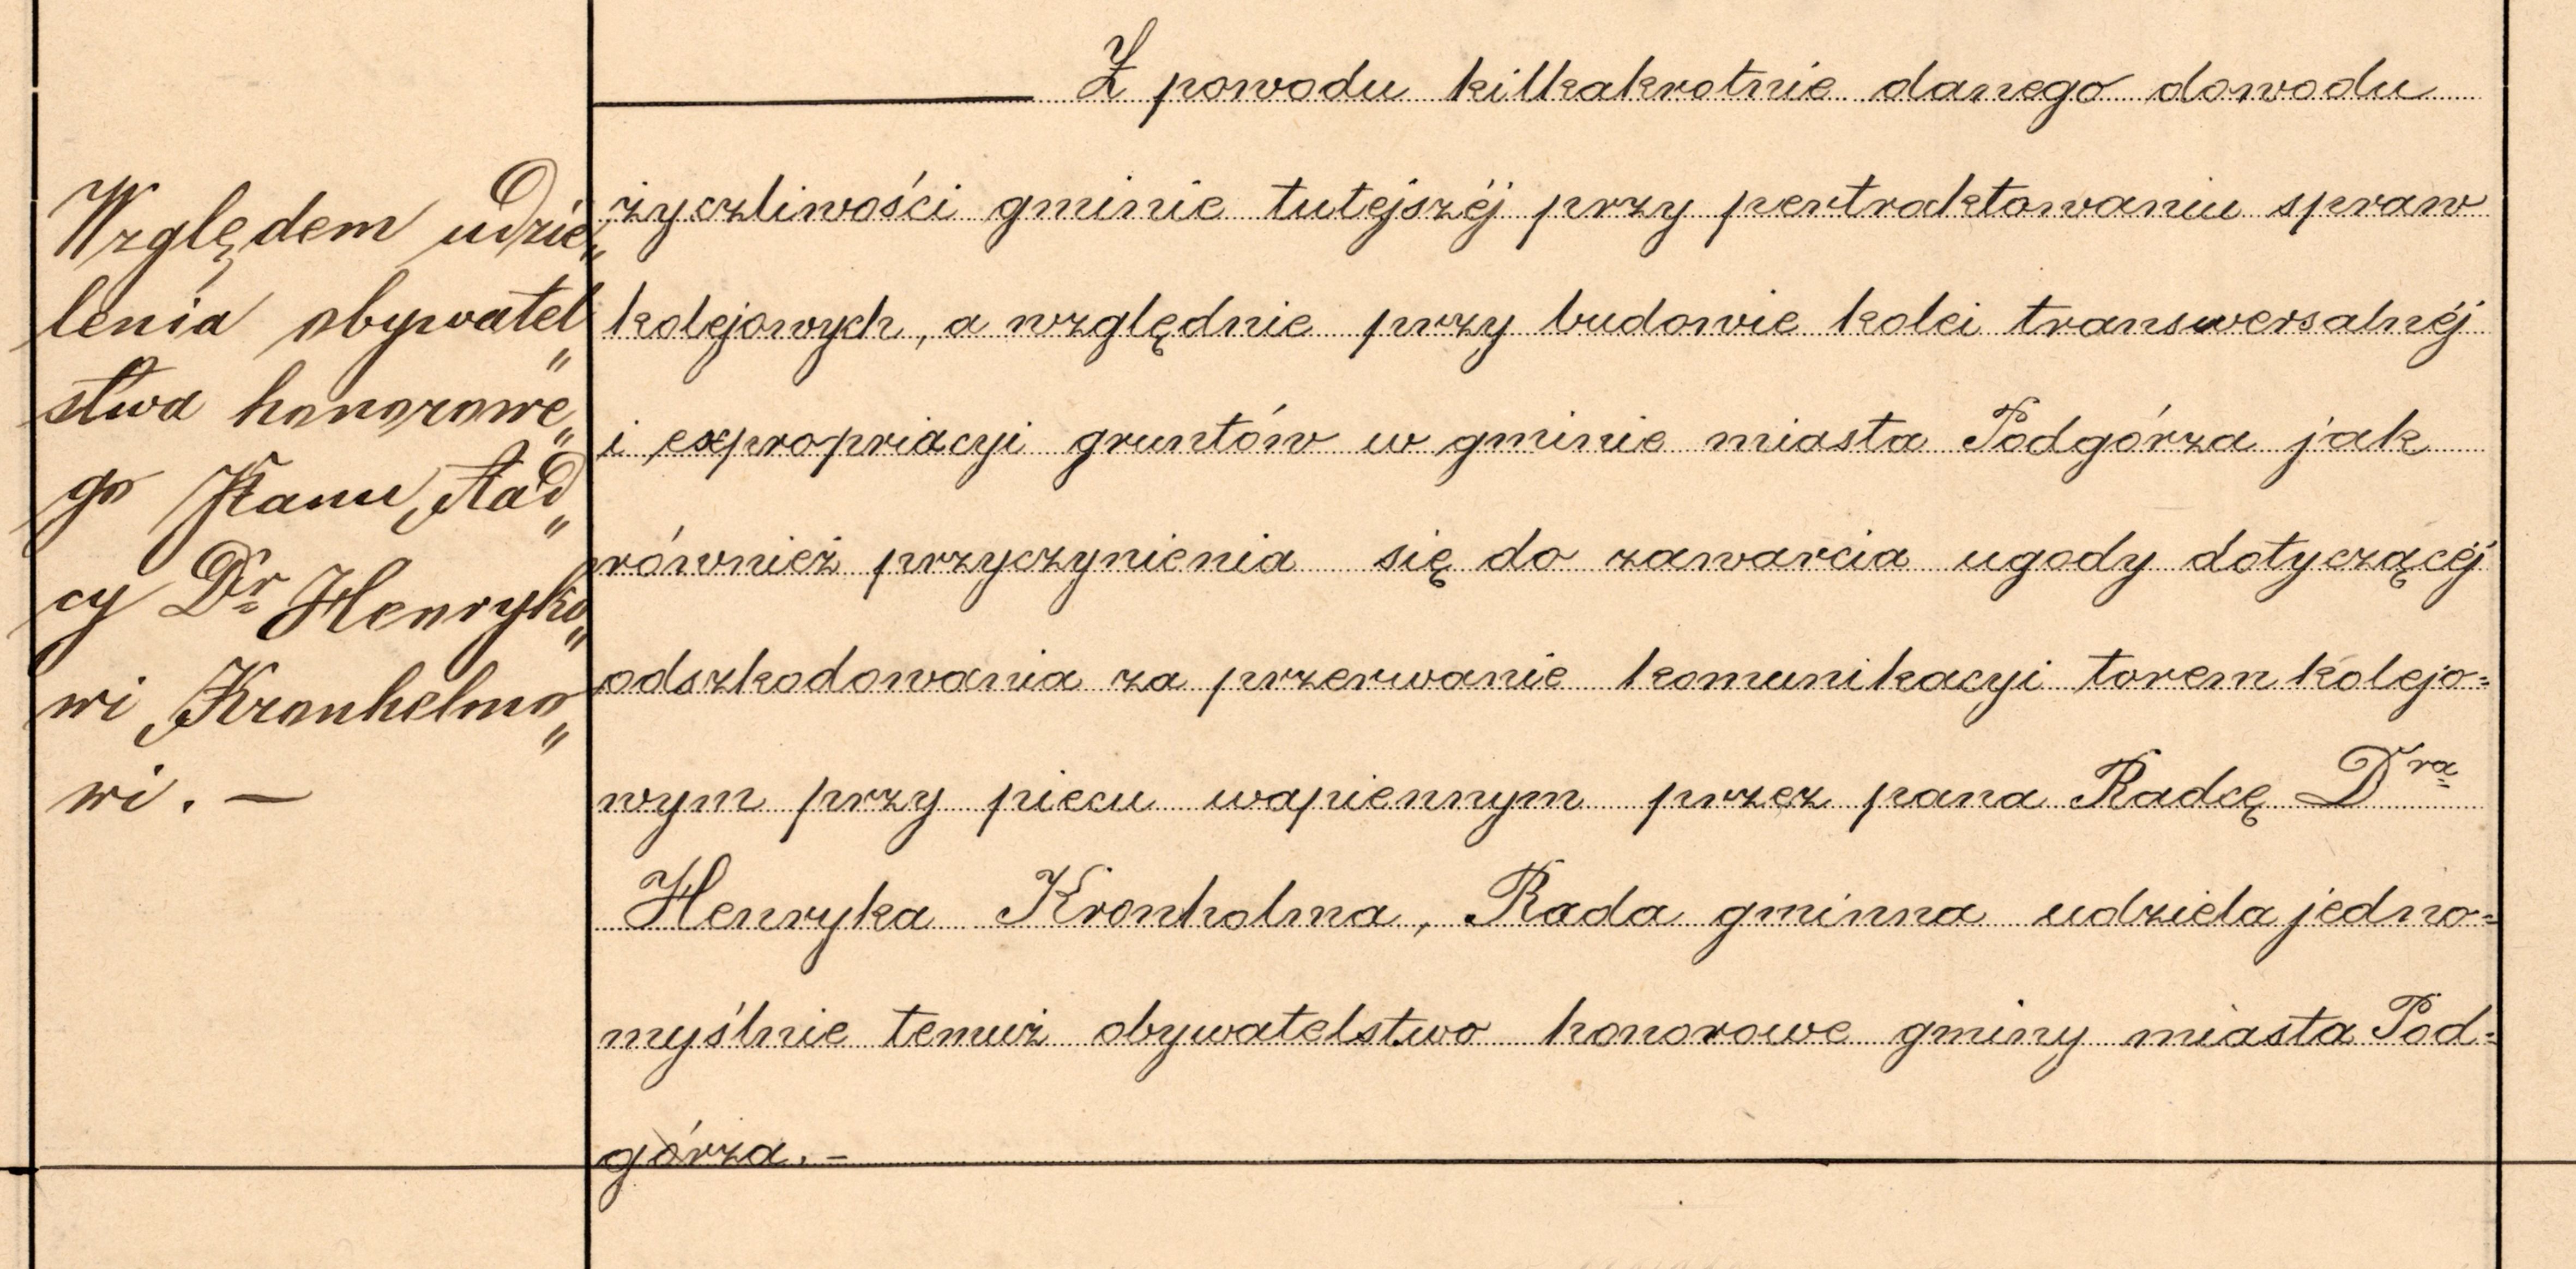 Względem udzie„
lenia obywatel„
stwa honorowe„
go Panu Rad„
cy Dr Henryko„
wi Kronhelmo„
wi. —
Z powodu kilkakrotnie danego dowodu
życzliwości gminie tutejszéj przy pertraktowaniu spraw
kolejowych, a względnie przy budowie kolei transwersalnéj
i expropriacyi gruntów w gminie miasta Podgórza jak
również przyczynienia się do zawarcia ugody dotyczącéj
odszkodowania za przerwanie komunikacyi torem kolejo=
wym przy piecu wapiennym przez pana Radcę Dra
Henryka Kronholma, Rada gminna udziela jedno=
myślnie temuż obywatelstwo honorowe gminy miasta Pod=
górza. –